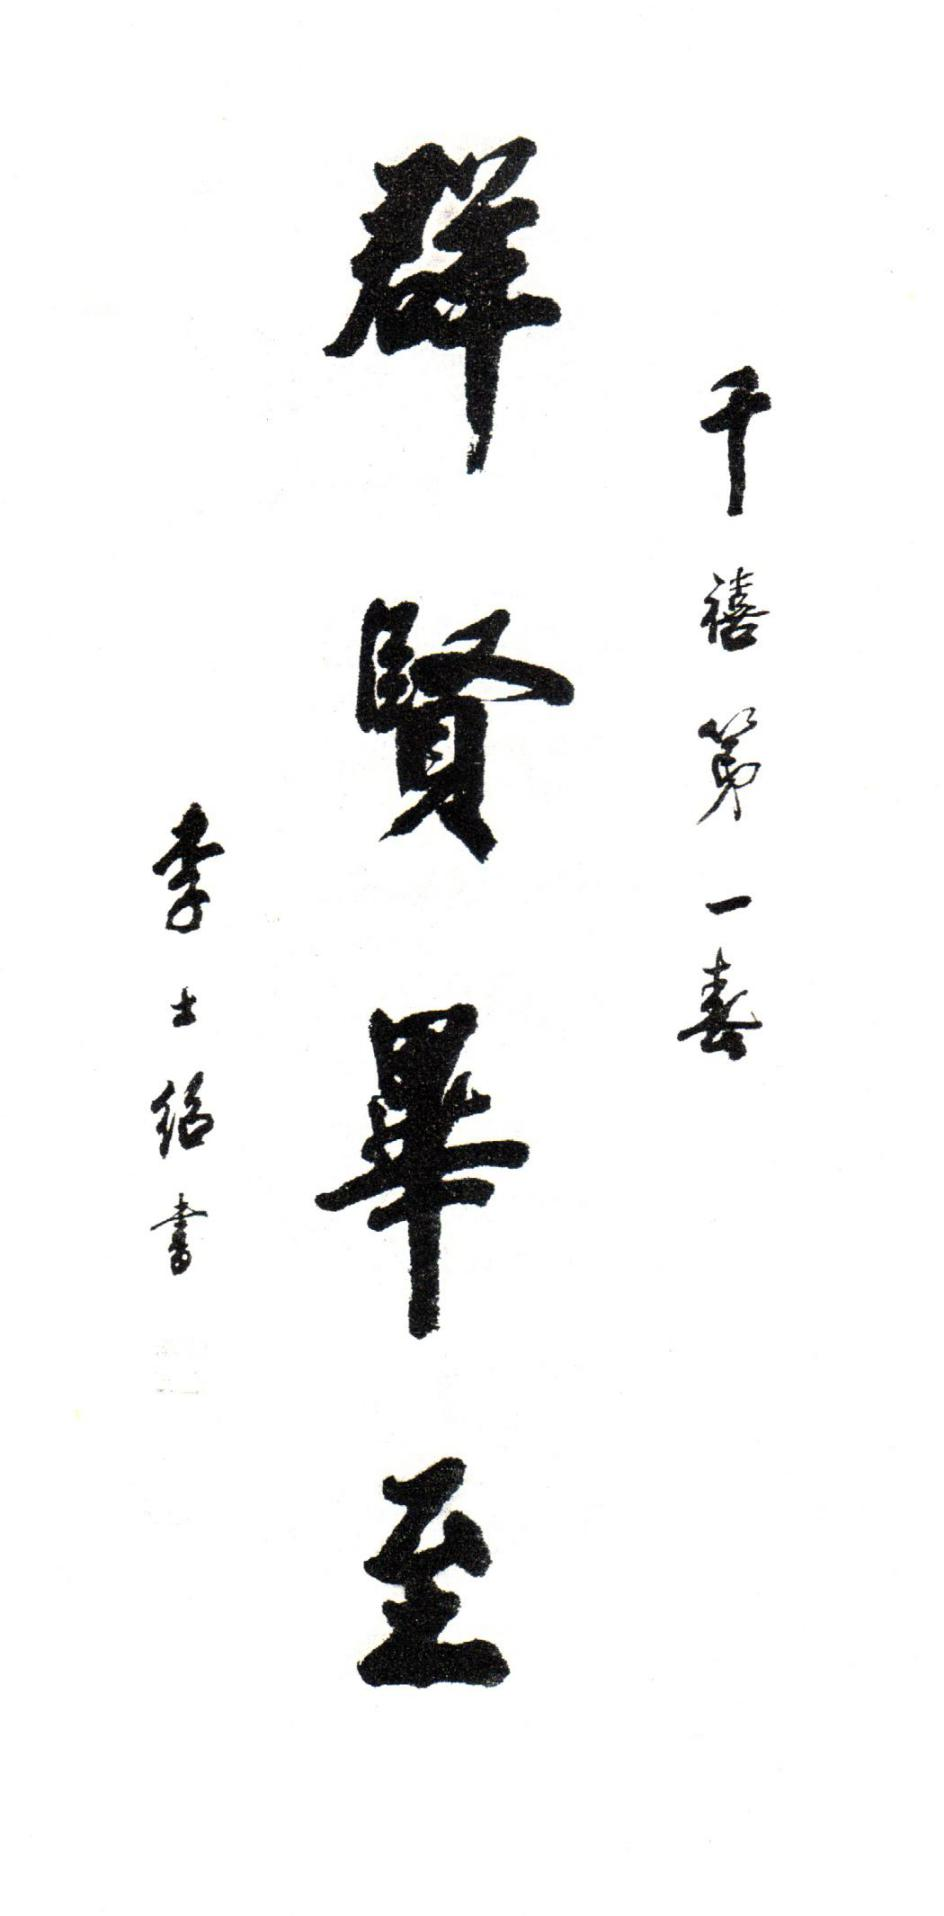 千禧第一春
群賢畢至
李士绍書